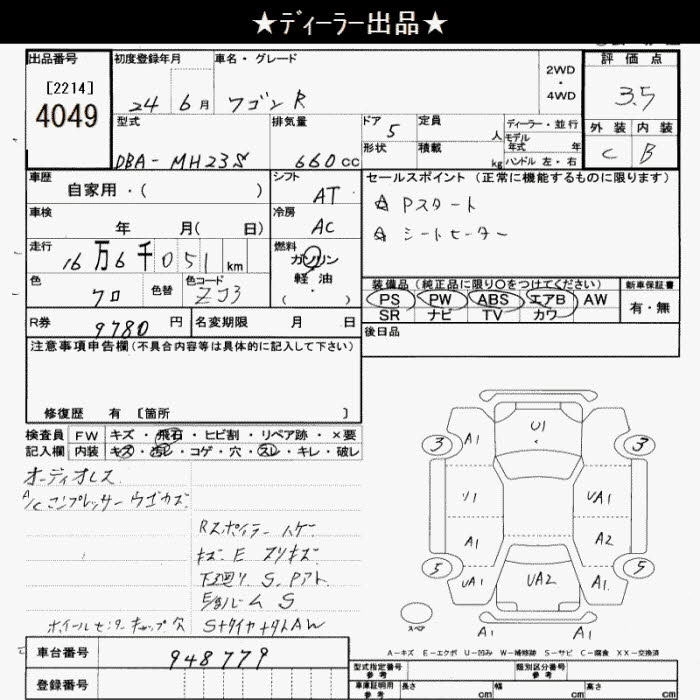 ★ディーラー出品★
出品番号
[2214]
4049
初度登録年月
24年 6月
車名・グレード
ワゴンR
2WD
・
4WD
評価点
3.5
外装 内装
C B
型式
DBA-MH23S
排気量
660cc
ドア 5
形状
定員 人
積載 kg
ディーラー・並行
モデル年式 年
ハンドル 左・右
車歴
自家用・( )
シフト
AT
セールスポイント (正常に機能するものに限ります)
☆ Pスタート
☆ シートヒーター
車検
年 月( 日)
冷房
AC
走行
16万6千051km
燃料
ガソリン
軽油
( ・ )
色
クロ
色替
色コード
ZJ3
装備品 (純正品に限り○をつけてください)
PS PW ABS エアB AW
SR ナビ TV カワ
新車保証書
有・無
R券 9780円
名変期限 月 日
後日品
注意事項申告欄(不具合内容等は具体的に記入して下さい)
修復歴 有 [箇所 ]
検査員記入欄
FW キズ・飛石・ヒビ割・リペア跡・×要
内装 キズ・汚レ・コゲ・穴・スレ・キレ・破レ
オーディオレス
A/Cコンプレッサー ウゴカズ
Rスポイラー ハゲ
キズ E スリキズ
下廻り S. Pアト
E/gルーム S
ホイールセンターキャップ欠
S+タイヤ+タトAW
U1
3 A1 A1 3
UA1
A1 A2
5 UA1 UA2 A1 5
スペア
A1 A1
A-キズ E-エクボ U-凹み W-補修跡 S-サビ C-腐食 XX-交換済
車台番号
948779
登録番号
型式指定番号 参考
類別区分番号 参考
車庫証明用 参考
長さ cm
幅 cm
高さ cm